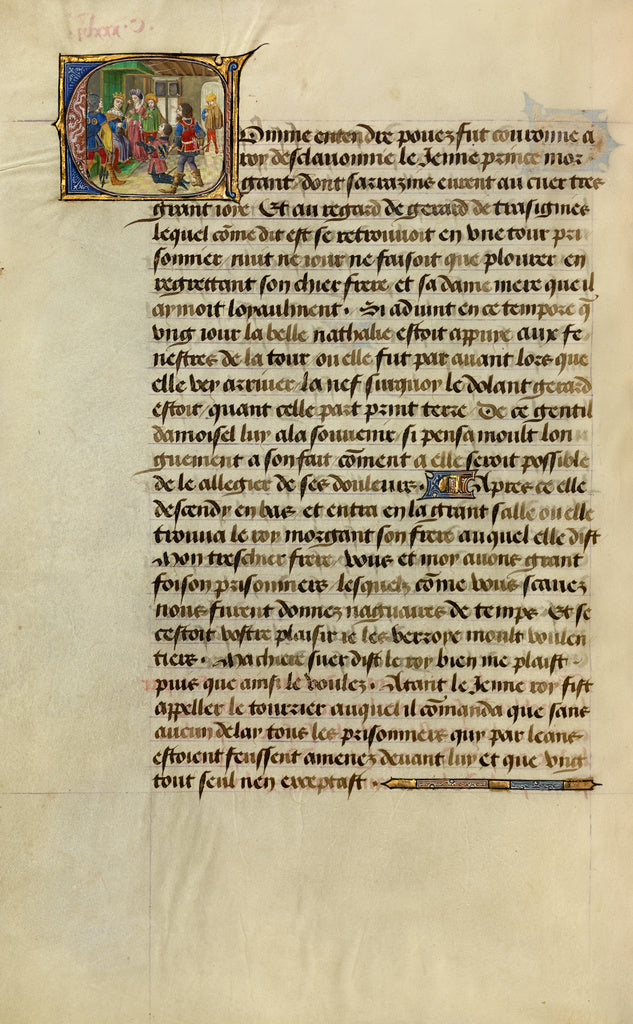 c. xxxiiij.
Comme entendre pouez fut couronne a
roy desclauonnie le Jenne prince mor-
gant dont sarrazins eurent au cuer tres
grant ioye Et au regard de gerard de trasignies
lequel cōme dit est se retrouuoit en vne tour pri
sonnier nuit ne iour ne faisoit que plourer en
regrettant son chier frere et sa dame mere que il
aymoit loyaulment. Si aduint en ce tempore q̄
vng iour la belle nathalie estoit appuye aux fe
nestres de la tour ou elle fut par auant lors que
elle vey arriuer la nef surquoy le dolant gerard
estoit quant celle part print terre De ce gentil
damoisel luy ala souuenir si pensa moult lon
guement a son fait cōment a elle seroit possible
de le allegier de ses douleurs. Apres ce elle
descendy en bas et entra en la grant salle ou elle
trouua le roy morgant son frere auquel elle dist
Mon treschier frere vous et moy auons grant
foison prisonniers lesquelz cōme vous scauez
nous furent donnez naguaires de temps Et se
cestoit vostre plaisir ie les verroye moult voulen
tiers. Ma chiere suer dist le roy bien me plaist
puis que ainsi le voulez. Atant le Jenne roy fist
appeller le tourrier auquel il cōmanda que sans
aucun delay tous les prisonniers quy par leans
estoient feussent amenez deuant luy et que vng
tout seul nen exceptast.